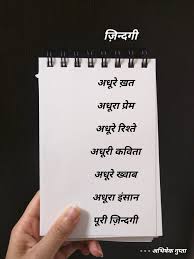 ज़िन्दगी
अधूरे ख़त
अधूरा प्रेम
अधूरे रिश्ते
अधूरी कविता
अधूरे ख्वाब
अधूरा इंसान
पूरी ज़िन्दगी
--- अभिषेक गुप्ता